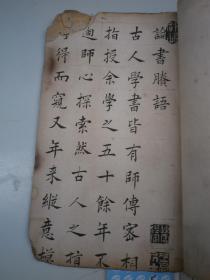 論書賸語
古人學書皆有師傳密相
指授余學之五十餘年不
適師心探索然古人之
得而窺又年來縱意